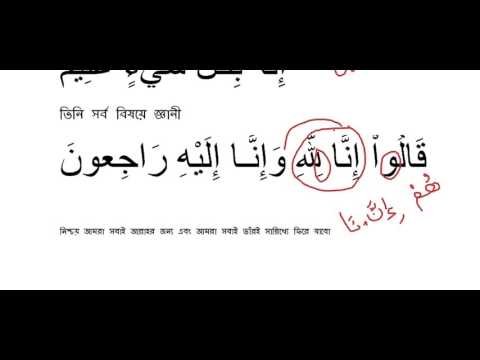 তিনি সর্ব বিষয়ে জ্ঞানী
قَالُوا إِنَّا لِلَّهِ وَإِنَّا إِلَيْهِ رَاجِعُونَ
هُمْ إِنَّ نَا
নিশ্চয় আমরা সবাই আল্লাহর জন্য এবং আমরা সবাই তাঁরই সান্নিধ্যে ফিরে যাবো